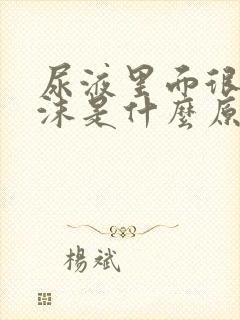 尿液里面很
沫是什麼原
楊斌